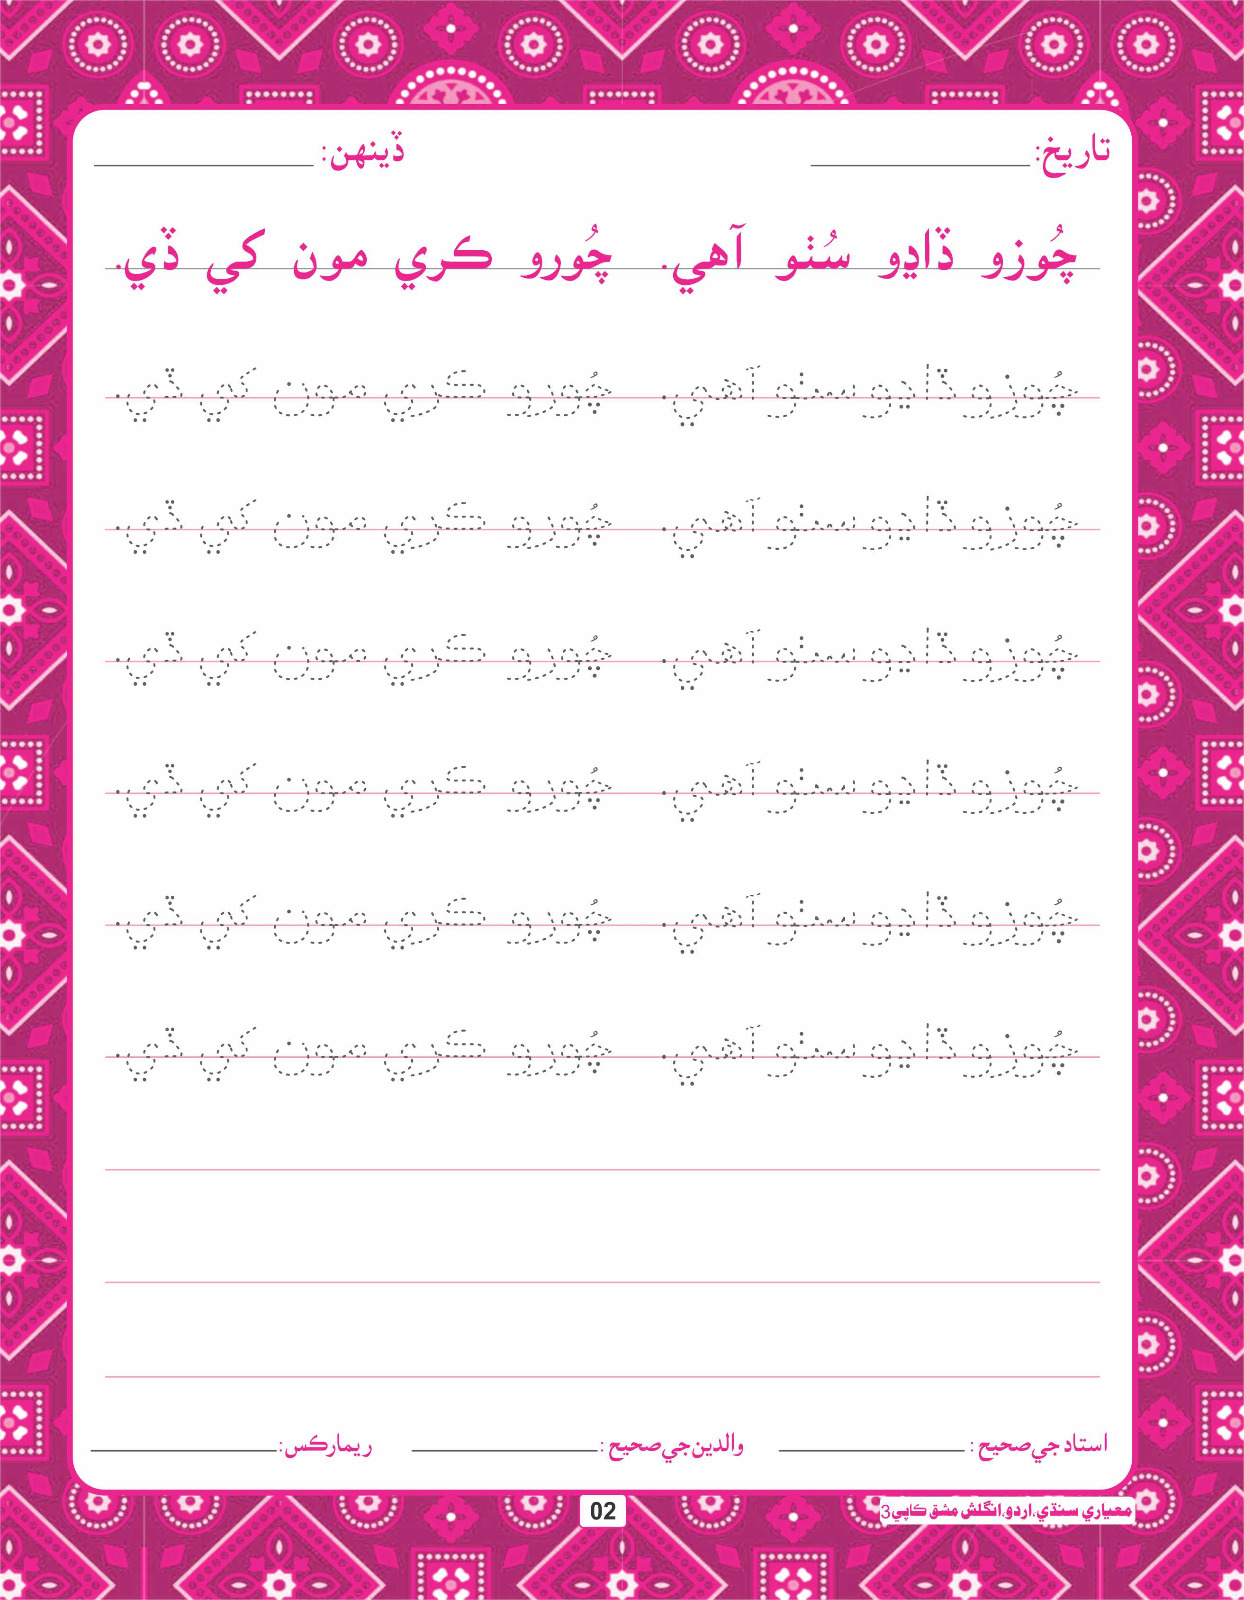 تاريخ: ڏينهن:
چُوزو ڏاڍو سُٺو آهي. چُورو ڪري مون کي ڏي.
چُوزو ڏاڍو سٺو آهي. چُورو ڪري مون کي ڏي.
چُوزو ڏاڍو سٺو آهي. چُورو ڪري مون کي ڏي.
چُوزو ڏاڍو سٺو آهي. چُورو ڪري مون کي ڏي.
چُوزو ڏاڍو سٺو آهي. چُورو ڪري مون کي ڏي.
چُوزو ڏاڍو سٺو آهي. چُورو ڪري مون کي ڏي.
چُوزو ڏاڍو سٺو آهي. چُورو ڪري مون کي ڏي.
استاد جي صحيح: والدين جي صحيح: ريمارڪس:
معياري سنڌي، اردو، انگلش مشق ڪاپي 3
02